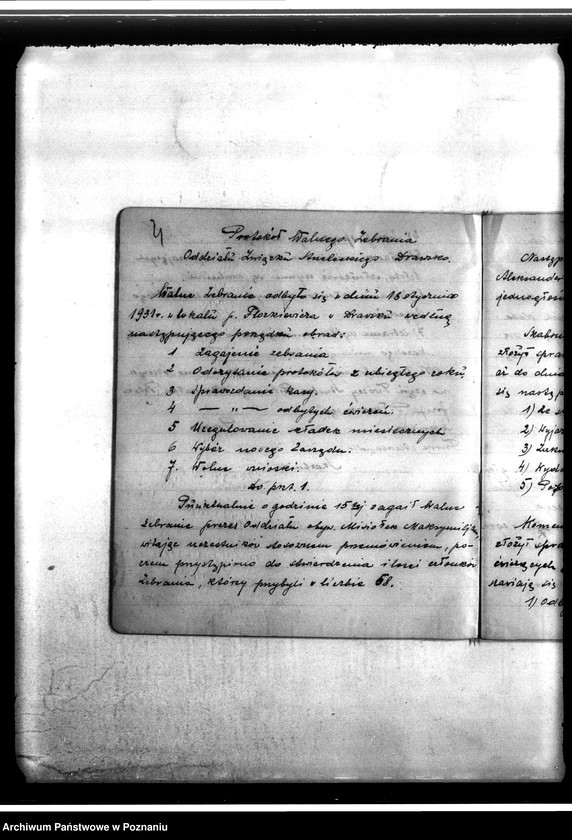 4
Protokół Walnego Zebrania
Oddziału Związku Strzeleckiego Drawsko.
Walne Zebranie odbyło się w dniu 15 stycznia
1931 r. w lokalu p. w Drawsku według
następującego porządku obrad:
1 Zagajenie zebrania
2 Odczytanie protokółu z ubiegłego roku
3 Sprawozdanie kasy.
4 — " — odbytych ćwiczeń.
5 Uregulowanie składek miesięcznych
6 Wybór nowego Zarządu.
7. Wolne wnioski.
Do pkt. 1.
Punktualnie o godzinie 15tej zagaił Walne
Zebranie prezes Oddziału obyw. Misiołek
witając uczestników stosownem przemówieniem, po-
czem przystąpiono do stwierdzenia ilości członków
Zebrania, którzy przybyli w liczbie 68.
Następ
Aleksander
jednogłoś
złożył spra
aż do dnia
się nastę
1)
2) Wyjaz
3)
4) Wyda
5)
Komen
złożył spra
ćwiczących
się
1) Odb
Archiwum Państwowe w Poznaniu